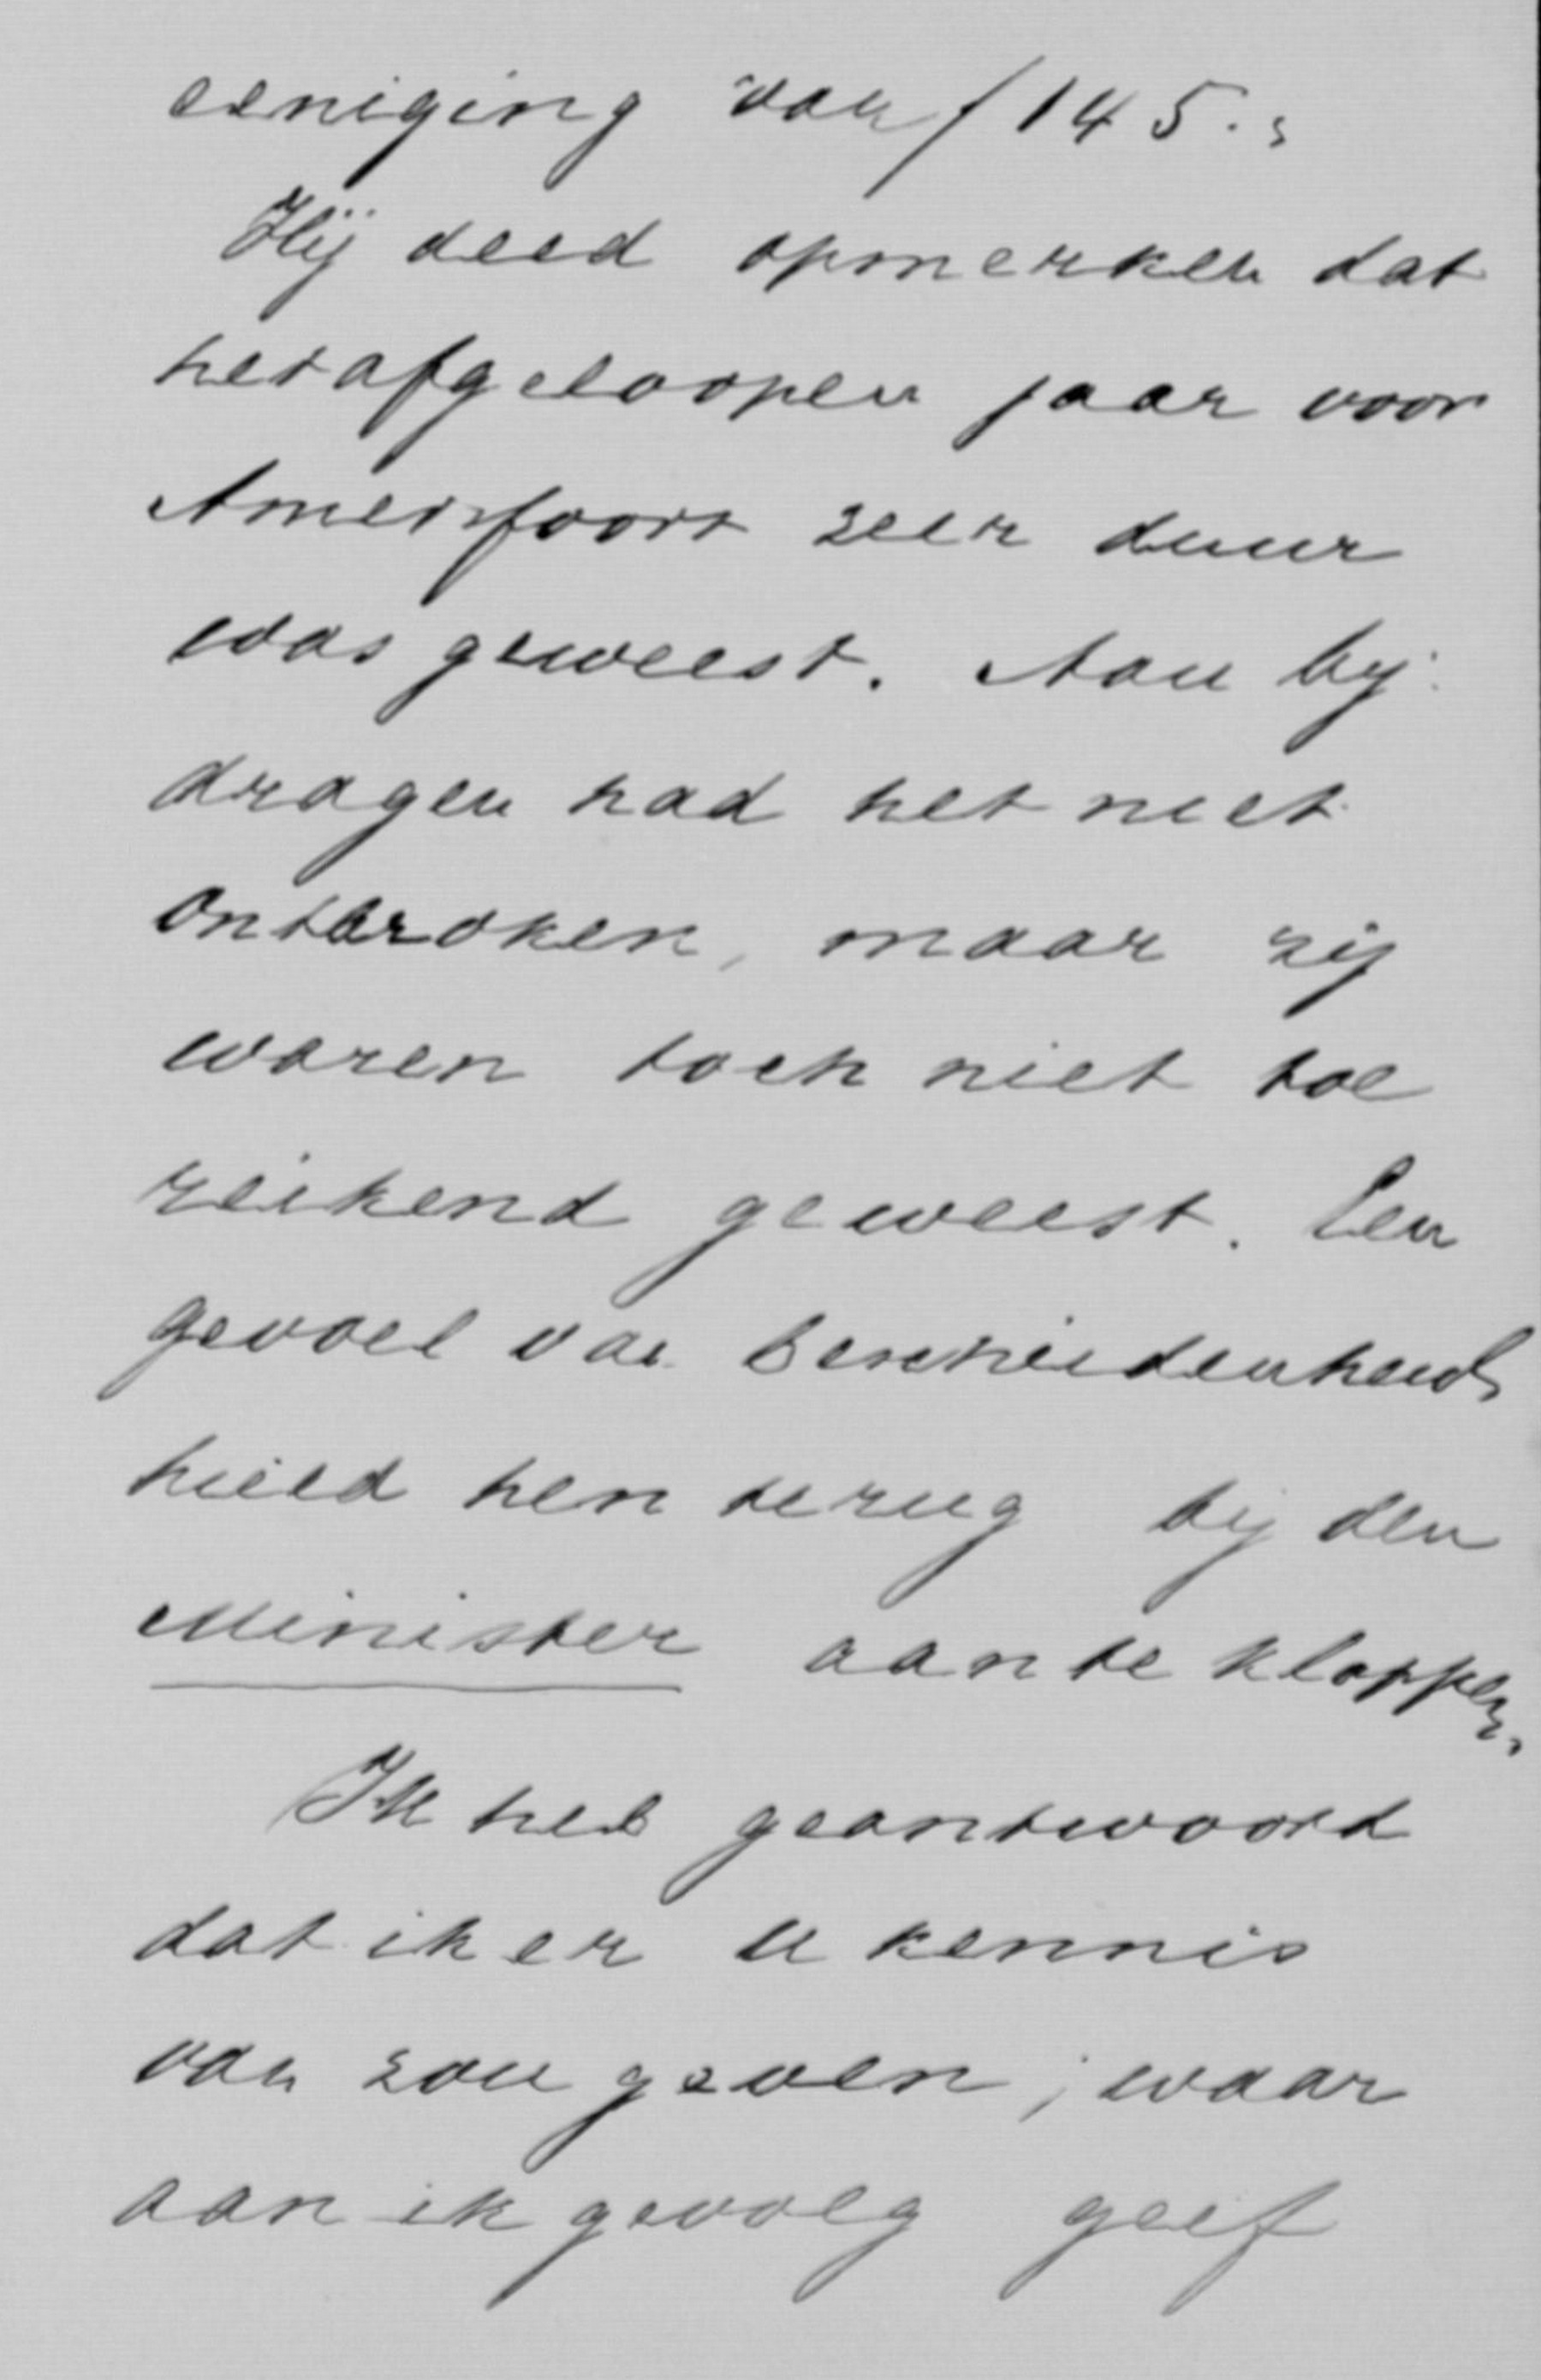 eeniging van ƒ 145.-
Hij deed opmerken dat
het afgeloopen jaar voor
Amersfoort zeer duur
was geweest. Aan bij-
dragen had het niet
ontbroken, maar zij
waren toch niet toe
reikend geweest. Een
gevoel van bescheidenheid
hield hen terug bij den
Minister aan te kloppen.
Ik heb geantwoord
dat ik er U kennis
van zou geven, waar
aan ik gevolg geef